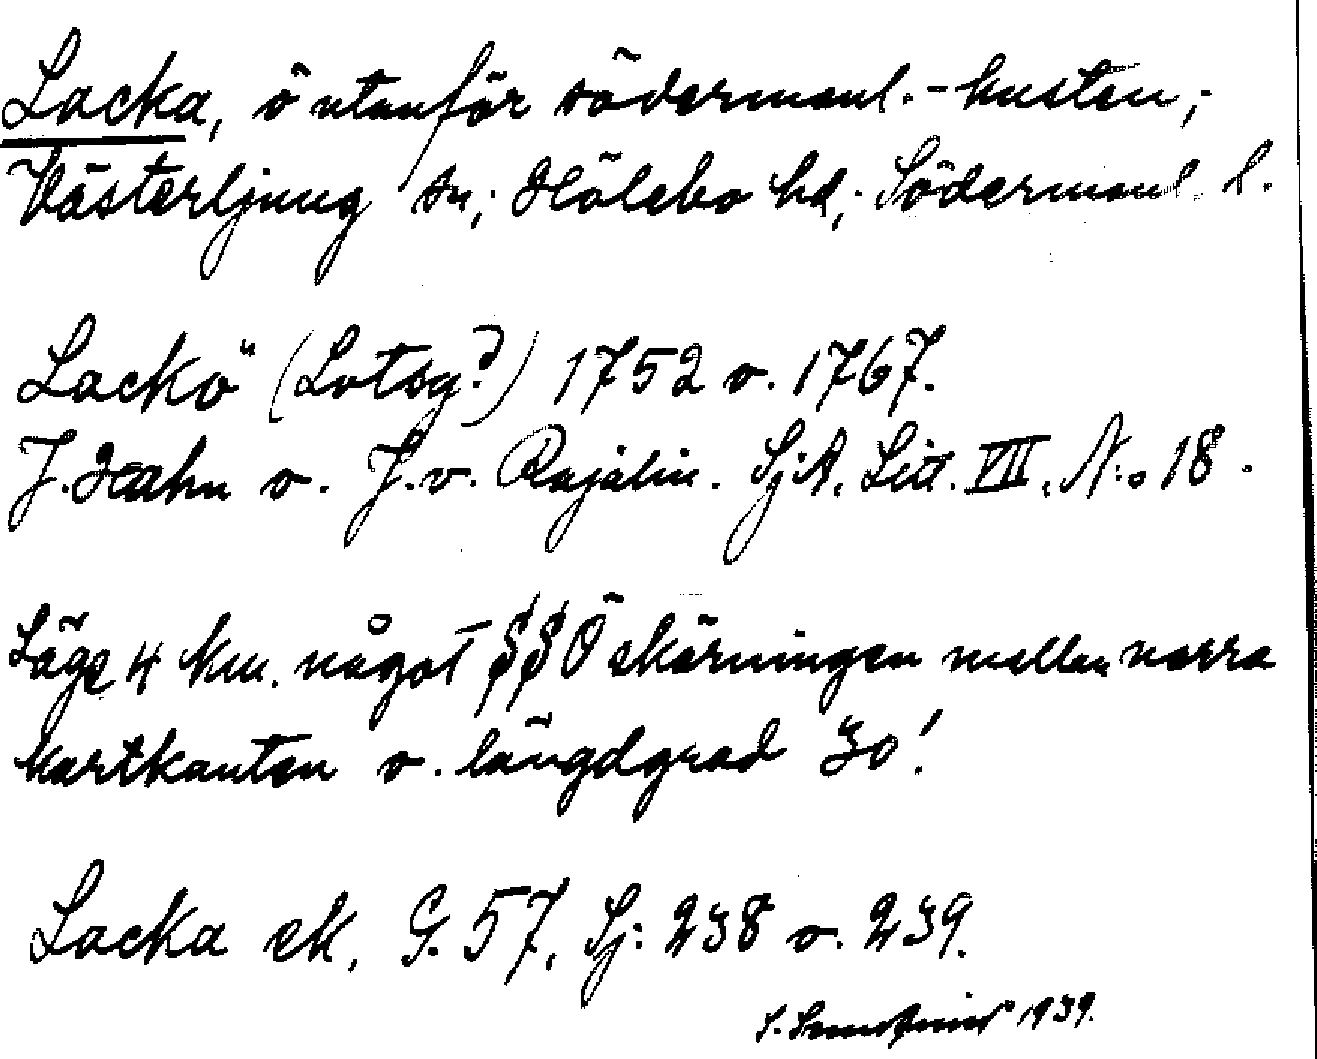 Lacka, ö utanför södermanl.-kusten;
Västerljung sn; Hölebo hd; Södermanl. l.
Lackö (Lotsg?) 1752 o. 1767.
J. Hahn o. J. v. Rajalin. SjA. Litt. VII. N:o 18.
Läge 4 km. något SSÖ skärningen mellan norra
kartkanten o. längdgrad 30'.
Lacka ek. G. 57. Sj: 238 o. 239.
S. 1939.